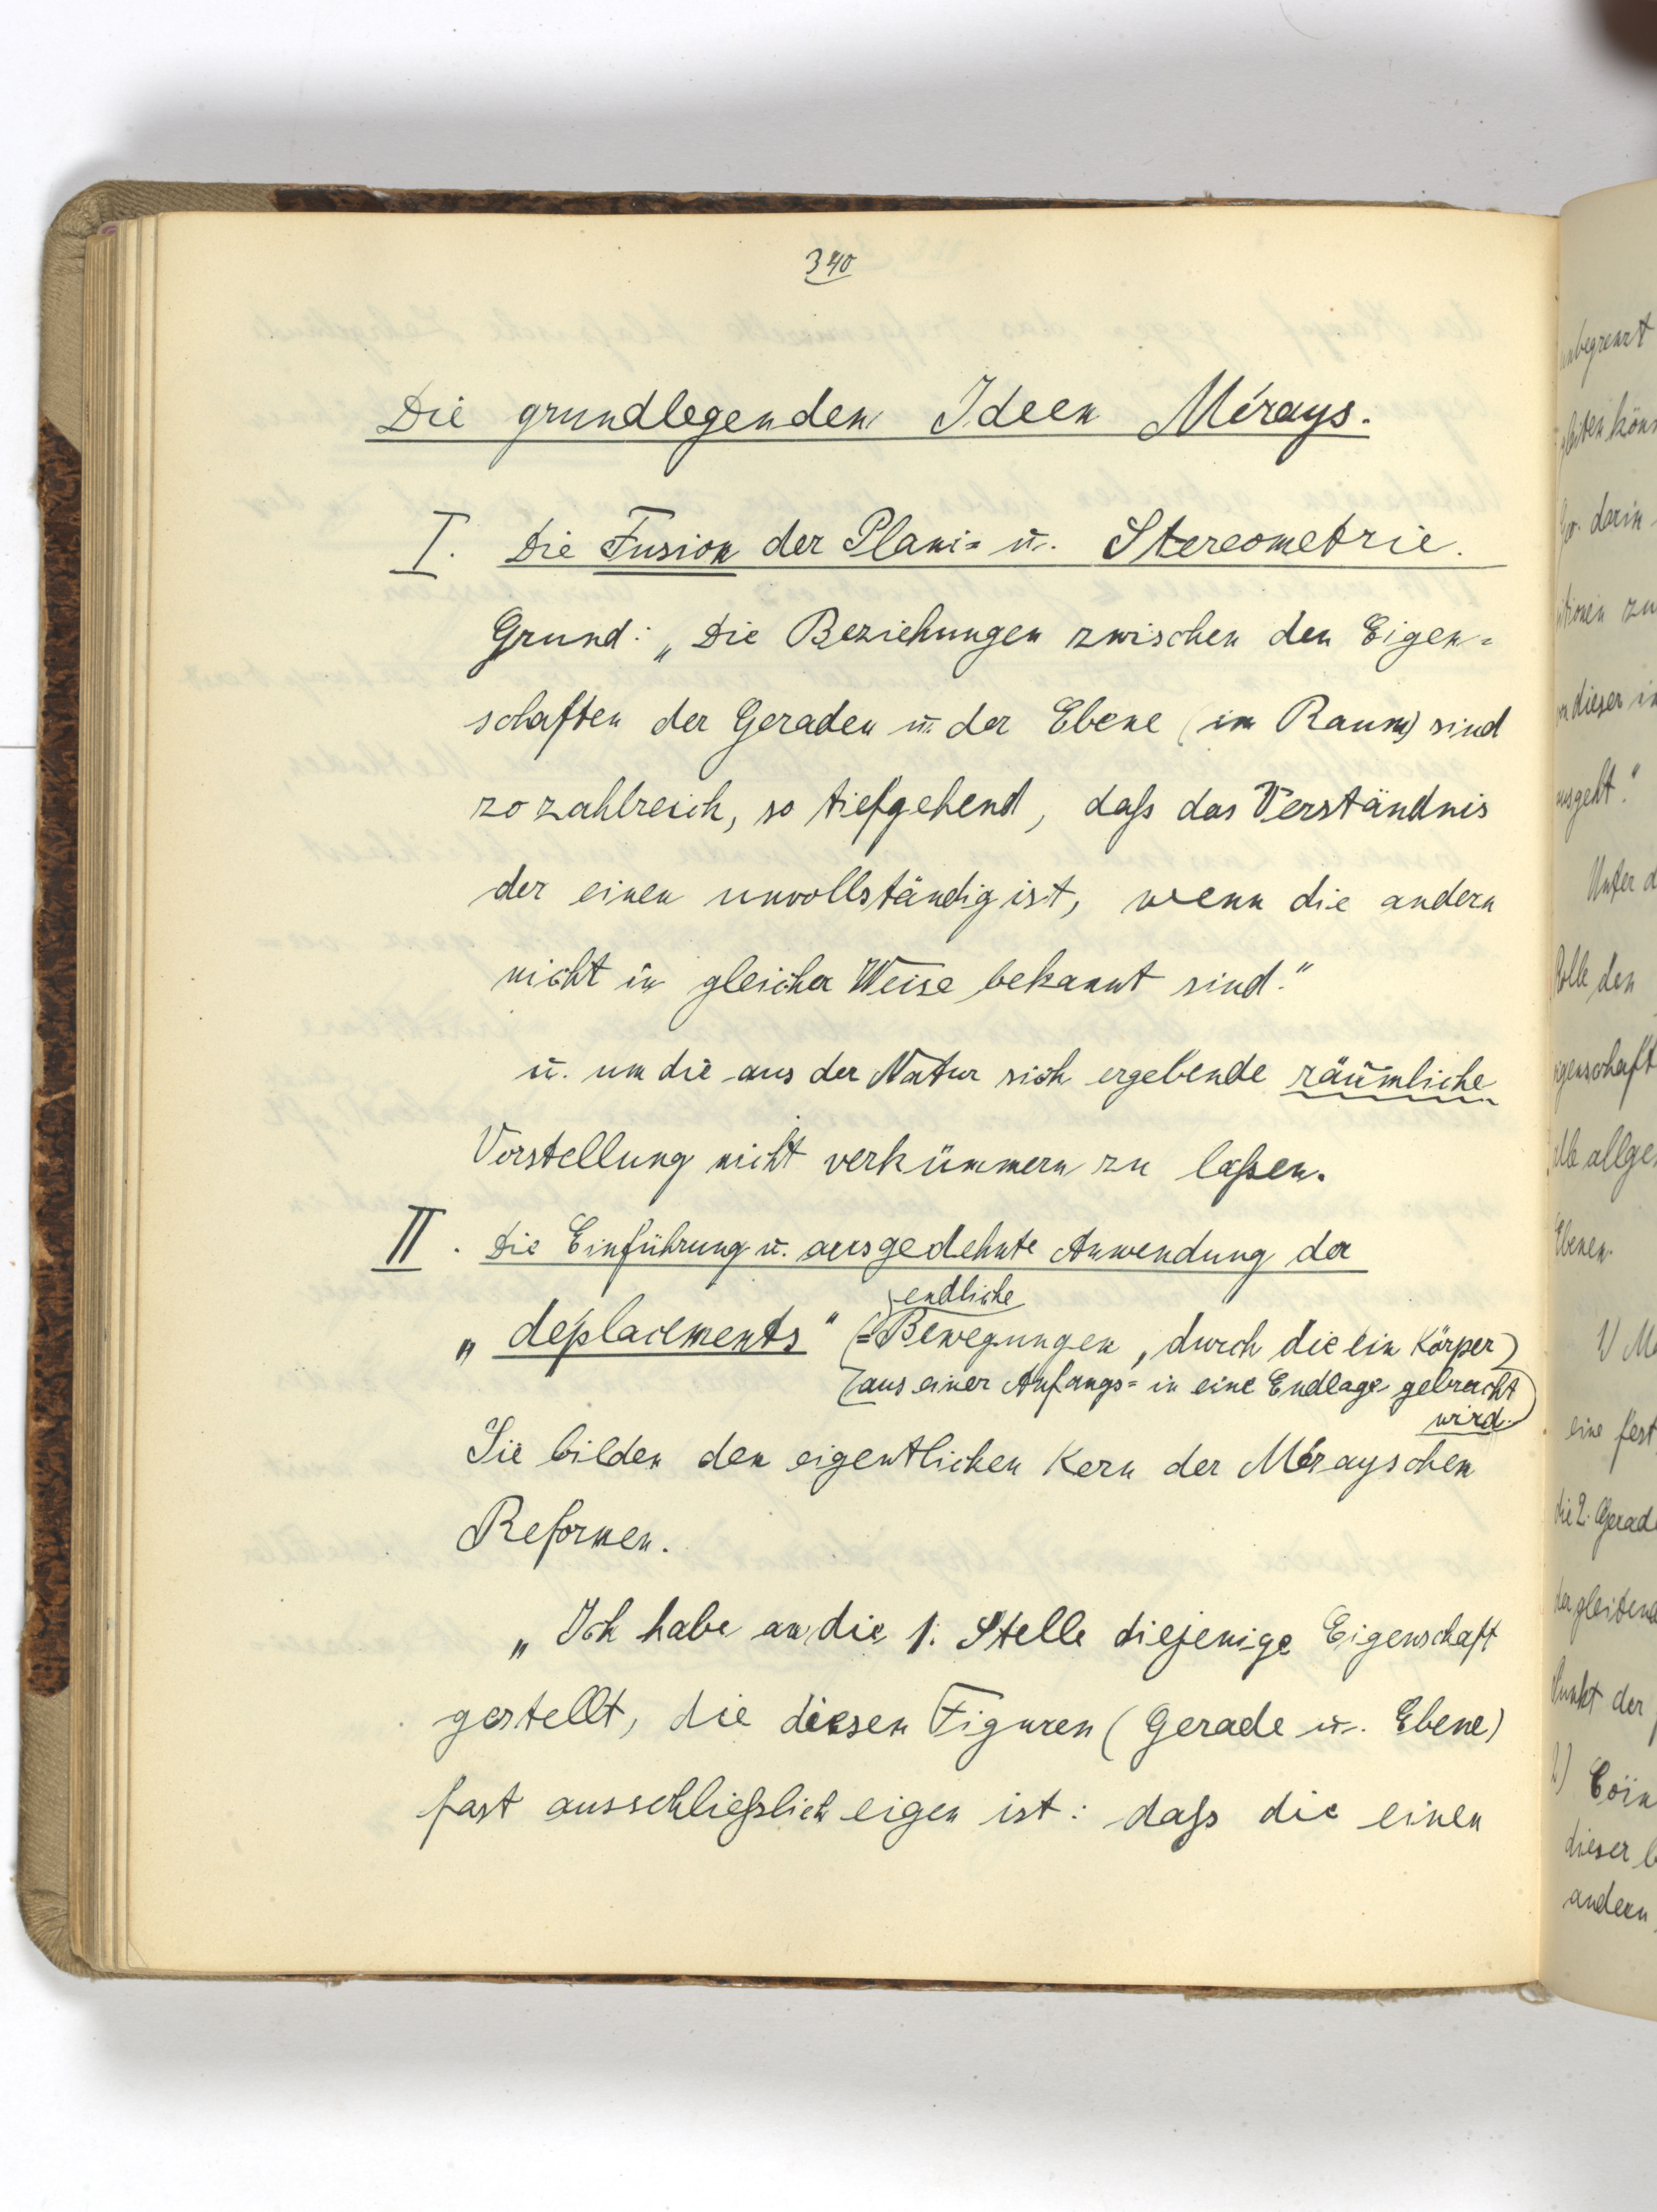 340
Die grundlegenden Ideen Mérays.
I. Die Fusion der Plani= u. Stereometrie.
Grund: „Die Beziehungen zwischen den Eigen=
schaften der Geraden u. der Ebene (im Raum) sind
so zahlreich, so tiefgehend, daſs das Verständnis
der einen unvollständig ist, wenn die andern
nicht in gleicher Weise bekannt sind."
u. um die aus der Natur sich ergebende räumliche
Vorstellung nicht verkümmern zu laſsen.
II. Die Einführung u. ausgedehnte Anwendung der
endliche
„deplacements" (=Bewegungen, durch die ein Körper
aus einer Anfangs= in eine Endlage gebracht
wird.)
Sie bilden den eigentlichen Kern der Mérayschen
Reformen.
„Ich habe an die 1. Stelle diejenige Eigenschaft
gestellt, die diesen Figuren (Gerade u. Ebene)
fast ausschlieſslich eigen ist: daſs die einen
unbegrenzt
gleiten kön
darin
zu
dieser in
ausgeht."
Unter d
Rolle den
igenschaft
allge
Ebenen.
1) M
eine fest
die 2. Gerad
der gleitend
Punkt der
2) Coin
dieser
andern